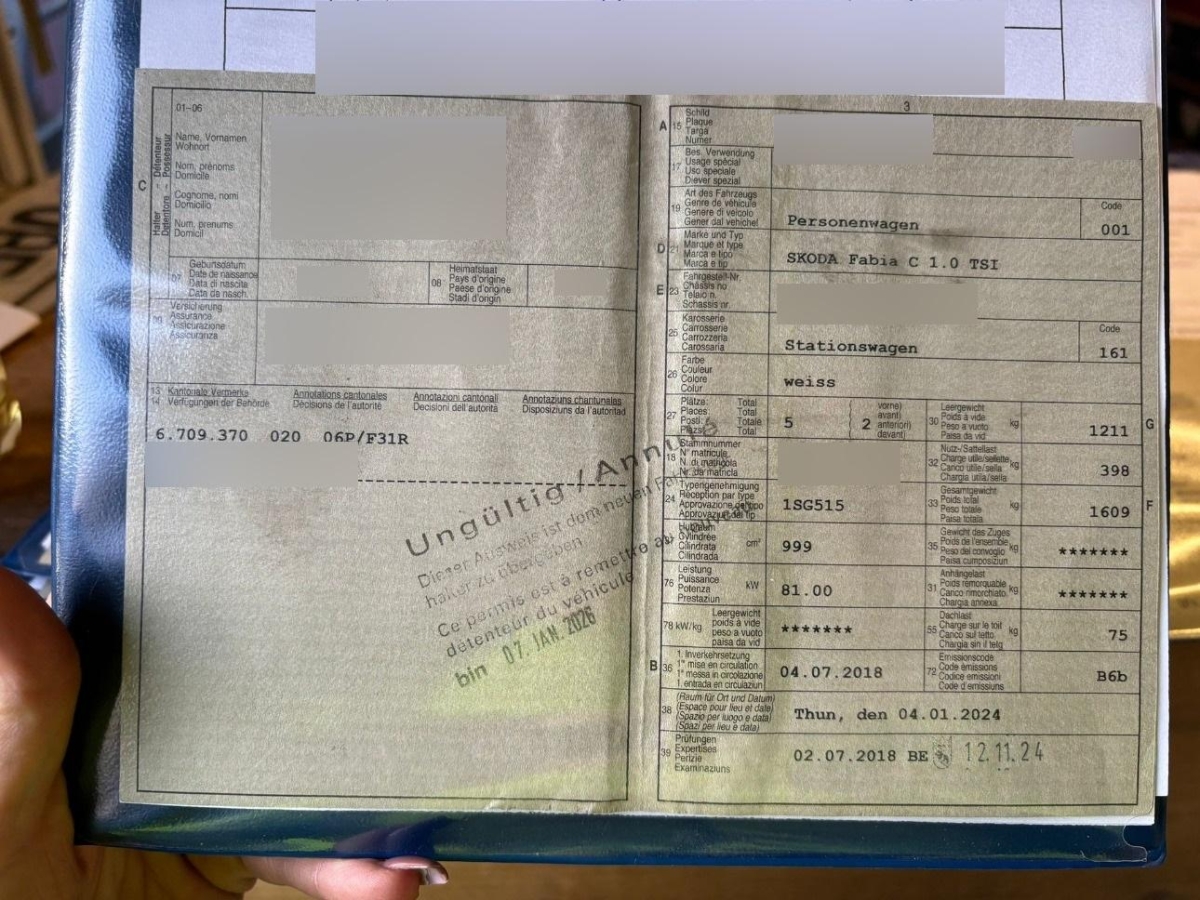 01–96
C
Halter - Détenteur
Detentore - Possessur
Name, Vornamen
Wohnort
Nom, prénoms
Domicile
Cognome, nomi
Domicilio
Num, prenums
Domicil
07
Geburtsdatum
Date de naissance
Data di nascita
Data da nasch.
08
Heimatstaat
Pays d'origine
Paese d'origine
Stadi d'origin
Versicherung
Assurance
Assicurazione
Assicuranza
13 Kantonale Vermerke Annotations cantonales Annotazioni cantonali Annotaziuns chantunalas
14 Verfügungen der Behörde Décisions de l'autorité Decisioni dell'autorità Disposiziuns da l'autoritad
6.709.370 020 06P/F31R
Ungültig / Annulé
Dieser Ausweis ist dem neuen
halter zu übergeben
Ce permis est à remettre au nouveau
détenteur du véhicule
bin 07. JAN. 2026
3
A 15
Schild
Plaque
Targa
Numer
17
Bes. Verwendung
Usage spécial
Uso speciale
Diever spezial
19
Art des Fahrzeugs
Genre de véhicule
Genere di veicolo
Gener dal vehichel
Personenwagen
Code
001
D 21
Marke und Typ
Marque et type
Marca e tipo
Marca e tip
SKODA Fabia C 1.0 TSI
E 23
Fahrgestell-Nr.
Châssis no
Telaio n.
Schassis nr.
25
Karosserie
Carrosserie
Carrozzeria
Carossaria
Stationswagen
Code
161
26
Farbe
Couleur
Colore
Colur
weiss
27
Plätze: Total
Places: Total
Posti: Totale
Plazs: Total
5
2
vorne)
avant)
anteriori)
devant)
30
Leergewicht
Poids à vide
Peso a vuoto
Paisa da vid
kg
1211
G
18
Stammnummer
N° matricule
N. di matricola
Nr. da matricla
32
Nutz-/Sattellast
Charge utile/sellette
Carico utile/sella
Chargia utila/sella
kg
398
24
Typengenehmigung
Réception par type
Approvazione del tipo
Approvaziun dal tip
1SG515
33
Gesamtgewicht
Poids total
Peso totale
Paisa totala
kg
1609
F
Hubraum
Cylindrée
Cilindrata
Cilindrada
cm³
999
35
Gewicht des Zuges
Poids de l'ensemble
Peso del convoglio
Paisa cumposiziun
kg
*******
76
Leistung
Puissance
Potenza
Prestaziun
kW
81.00
31
Anhängelast
Poids remorquable
Carico rimorchiato
Chargia annexa
kg
*******
78 kW/kg
Leergewicht
poids à vide
peso a vuoto
paisa da vid
*******
55
Dachlast
Charge sur le toit
Carico sul tetto
Chargia sin il tetg
kg
75
B 36
1. Inverkehrsetzung
1re mise en circulation
1a messa in circolazione
1. entrada en circulaziun
04.07.2018
72
Emissionscode
Code émissions
Codice emissioni
Code d'emissiuns
B6b
38
(Raum für Ort und Datum)
(Espace pour lieu et date)
(Spazio per luogo e data)
(Spazi per lieu e data)
Thun, den 04.01.2024
39
Prüfungen
Expertises
Perizie
Examinaziuns
02.07.2018 BE 12.11.24